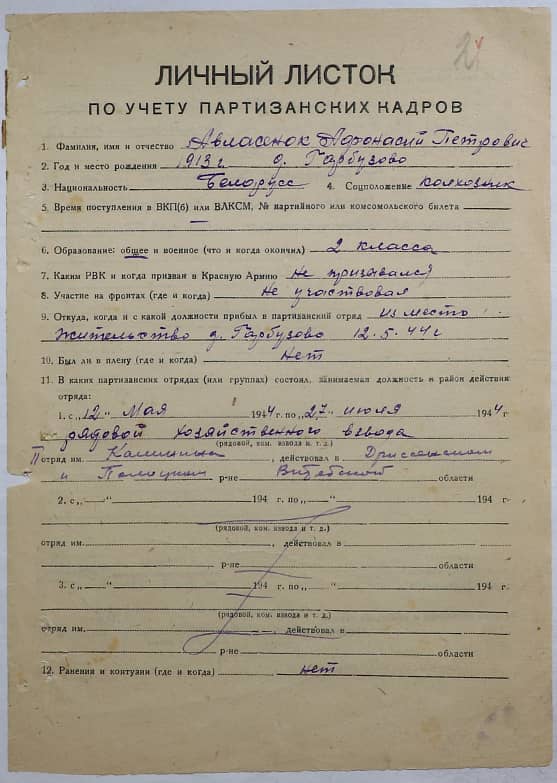 2
ЛИЧНЫЙ ЛИСТОК
ПО УЧЕТУ ПАРТИЗАНСКИХ КАДРОВ
1. Фамилия, имя и отчество Авласенок Афонасий Петрович
2. Год и место рождения 1913 г д. Гарбузово
3. Национальность Белорусс 4. Соцположение колхозник
5. Время поступления в ВКП(б) или ВЛКСМ, № партийного или комсомольского билета
6. Образование: общее и военное (что и когда окончил) 2 класса
7. Каким РВК и когда призван в Красную Армию Не призывался
8. Участие на фронтах (где и когда) Не участвовал
9. Откуда, когда и с какой должности прибыл в партизанский отряд из место
жительство д. Гарбузово 12.5.44 г
10. Был ли в плену (где и когда) нет
11. В каких партизанских отрядах (или группах) состоял, занимаемая должность и район действия
отряда:
1. с „12" Мая 1944 г. по „27" июля 1944 г.
рядовой хозяйственного взвода
(рядовой, ком. взвода и т. д.)
II отряд им. Калинина, действовал в Дриссенском
и Полоцком р-не Витебской области
2. с „ " 194 г. по „ " 194 г.
(рядовой, ком. взвода и т. д.)
отряд им. , действовал в
р-не области
3. с „ " 194 г. по „ " 194 г.
(рядовой, ком. взвода и т. д.)
отряд им. , действовал в
р-не области
12. Ранения и контузии (где и когда) нет